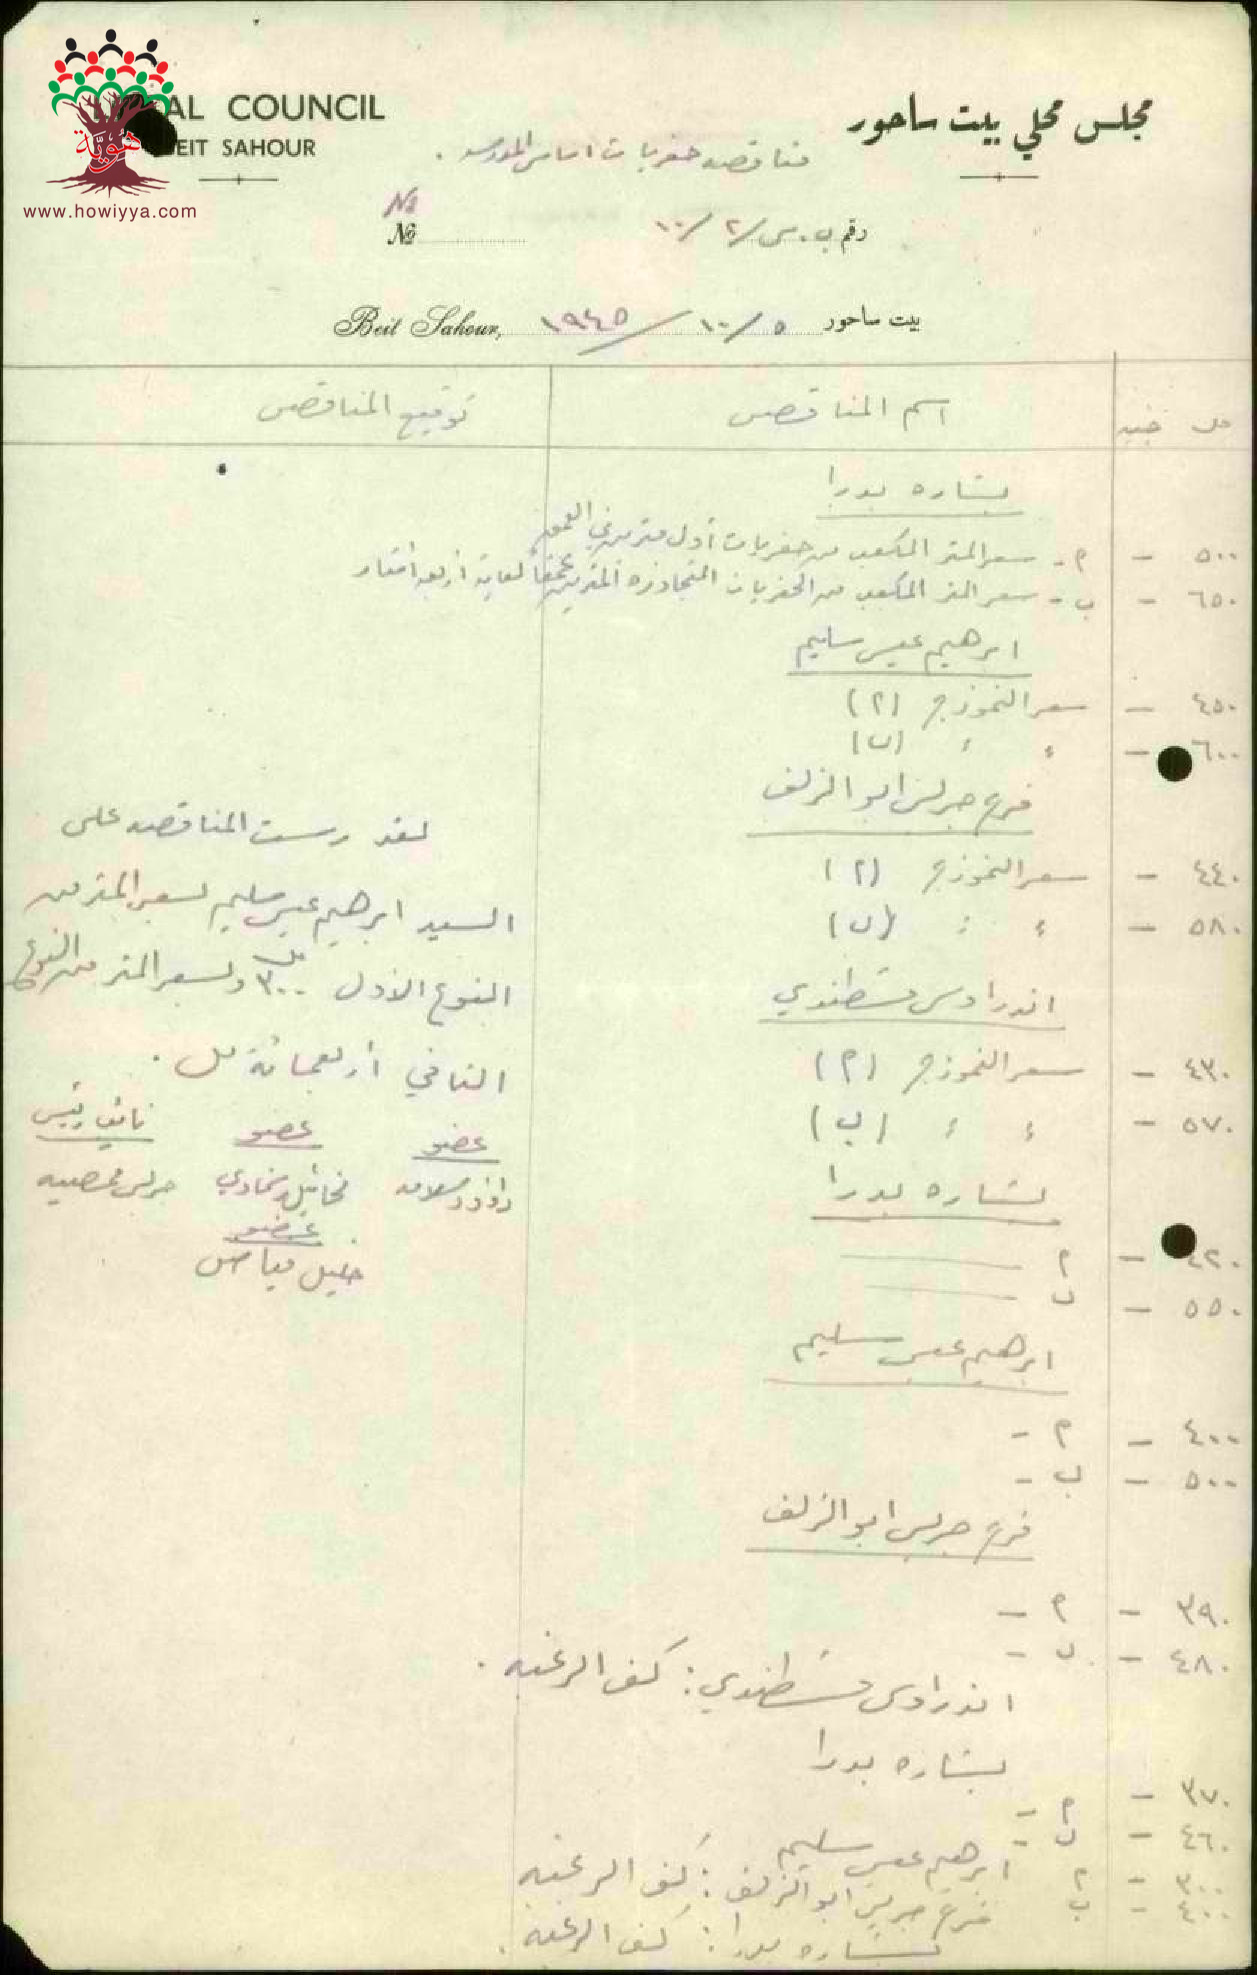 LOCAL COUNCIL
BEIT SAHOUR
هوية
www.howiyya.com
مجلس محلي بيت ساحور
مناقصه حفريات اساس المدرسه .
№
№
رقم ب. س/٢/١٠
Beit Sahour, ١٩٤٥/١٠/٥ بيت ساحور
مل جنيه اسم المناقص توقيع المناقص
بشاره بدرا
٥٠٠ - أ - سعر المتر المكعب من حفريات أول مترين في العمق
٦٥٠ - ب - سعر المتر المكعب من الحفريات المتجاوزه المترين عمقاً لغاية أربعة امتار
ابرهيم عيسى سليم
٤٥٠ - سعر النموذج (أ)
٦٠٠ - " " (ب)
فرح جريس ابو الزلف
٤٤٠ - سعر النموذج (أ)
٥٨٠ - " " (ب)
اندراوس قسطندي
٤٣٠ - سعر النموذج (أ)
٥٧٠ - " " (ب)
بشاره بدرا
٤٢٠ - أ
٥٥٠ - ب
ابرهيم عيسى سليم
٤٠٠ - أ -
٥٠٠ - ب -
فرح جريس ابو الزلف
٣٩٠ - أ -
٤٨٠ - ب -
اندراوس قسطندي : كف الرغبه .
بشاره بدرا
٣٧٠ - أ -
٤٦٠ - ب -
ابرهيم عيسى سليم
٣٠٠ - أ
٤٠٠ - ب
فرح جريس ابو الزلف : كف الرغبه
بشاره بدرا : كف الرغبه .
لقد رست المناقصه على
السيد ابرهيم عيسى سليم لسعر المتر من
النوع الاول ٣٠٠ مل ولسعر المتر من النوع
الثاني أربعمائة مل .
عضو عضو نائب رئيس
داؤد سلامه جريس
عضو
خليل